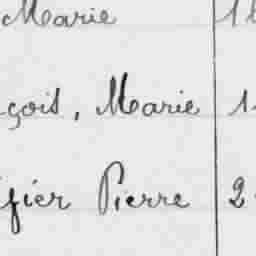 Marie 1
çois, Marie 1
fier Pierre 2